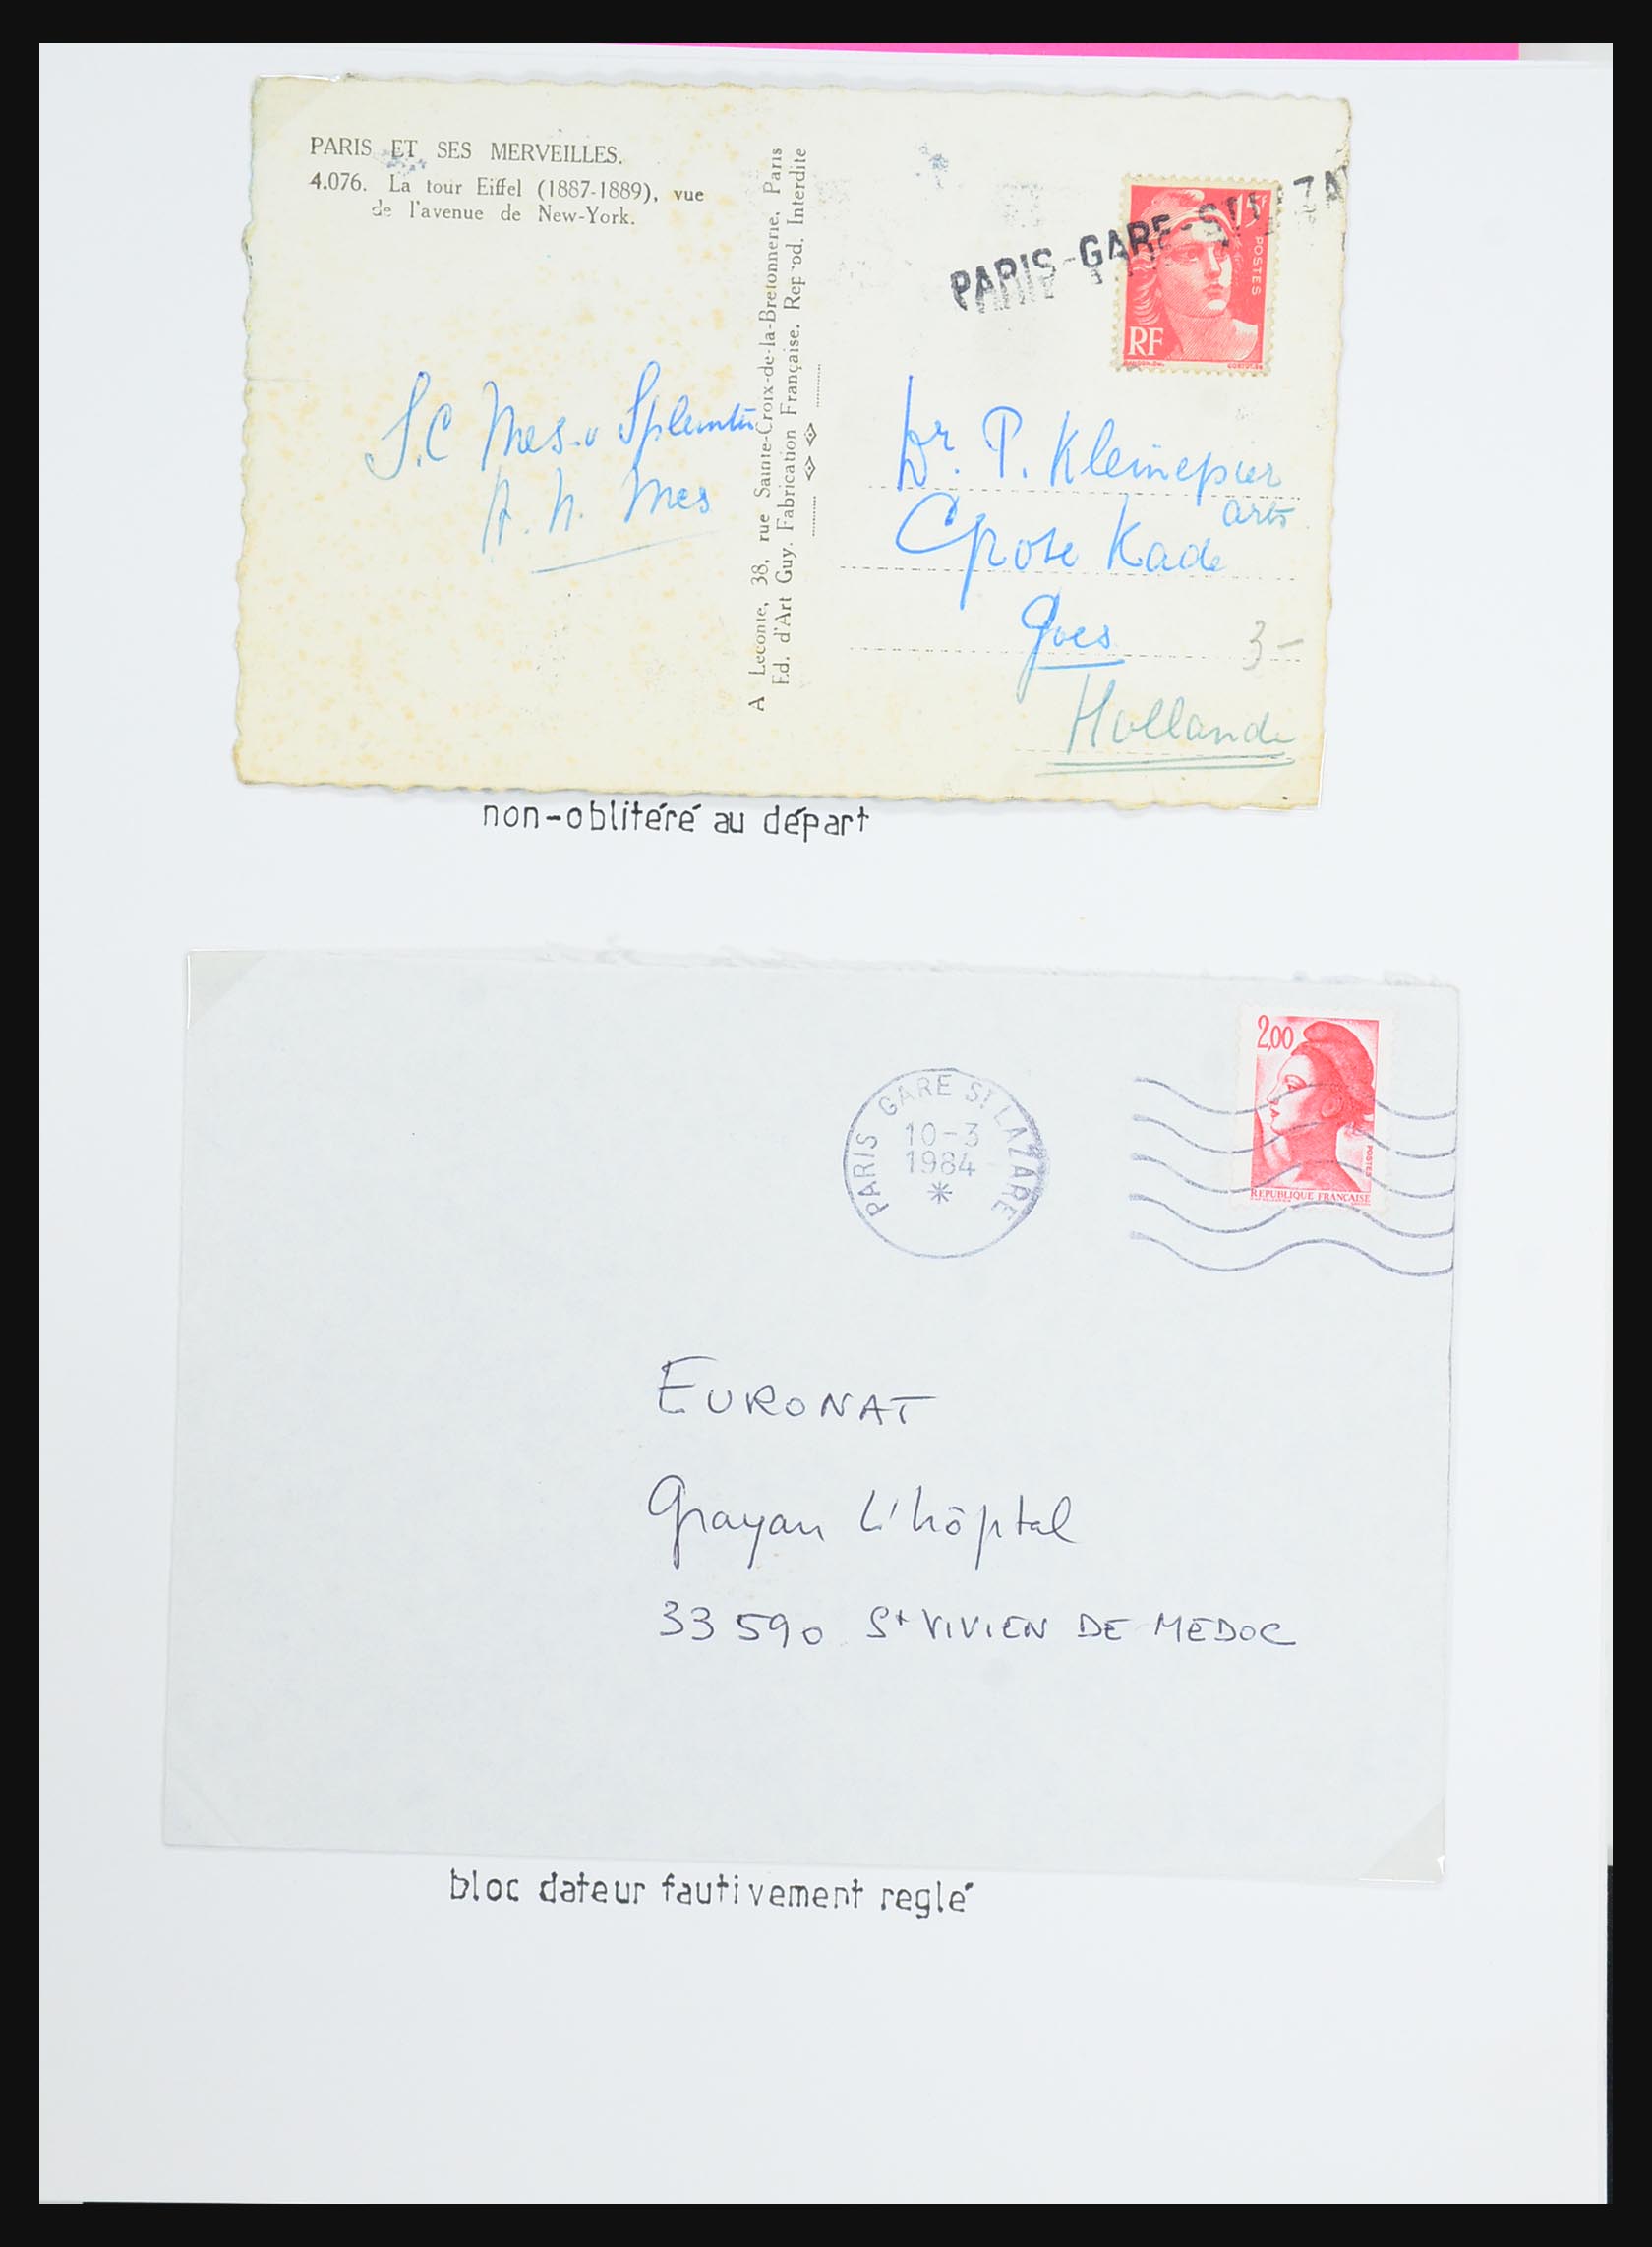 PARIS ET SES MERVEILLES.
4.076. La tour Eiffel (1887-1889), vue
de l'avenue de New-York.
A Leconte, 38, rue Sainte-Croix-de-la-Bretonnerie, Paris
Ed. d'Art Guy. Fabrication Française. Reprod. Interdite
PARIS-GARE-ST
15F
POSTES
RF
S.C Mes.v
A. N. Mes
Dr. P. Kleinepier
arts
Kade
Goes
3-
Hollande
non-oblitéré au départ
2,00
POSTES
REPUBLIQUE FRANÇAISE
PARIS GARE ST LAZARE
10-3
1984
EURONAT
Grayan L'hôpital
33590 St VIVIEN DE MEDOC
bloc dateur fautivement reglé